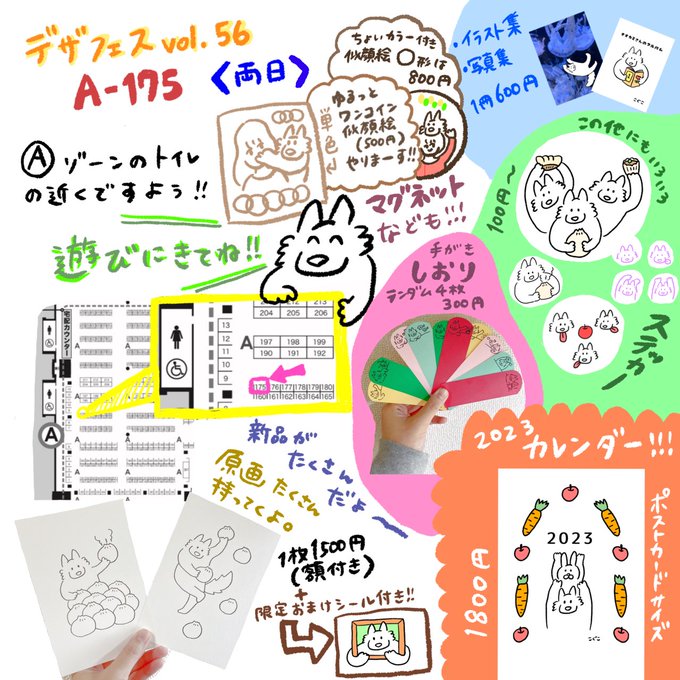 デザフェス vol. 56
A-175 〈両日〉
Ⓐ ゾーンのトイレ
の近くですよう!!
遊びにきてね!!
ちょいカラー付き
似顔絵 ○形は
800円
ゆるっと
ワンコイン
似顔絵
(500円)
単色
やりまーす!!
マグネット
なども!!!
・イラスト集
・写真集
1冊600円
この他にもいろいろ
100円〜
ステッカー
手がき
しおり
ランダム4枚
300円
宅配カウンター
A
A
A
A
A
211 212 213
204 205 206
197 198 199
190 191 192
175 176 177 178 179 180
160 161 162 163 164 165
13
12
11
10
9
新品が
たくさん
だよ〜
原画たくさん
持ってくよ。
1枚1500円
(額付き)
+
限定おまけシール付き!!
2023
カレンダー!!!
ポストカードサイズ
1800円
2023